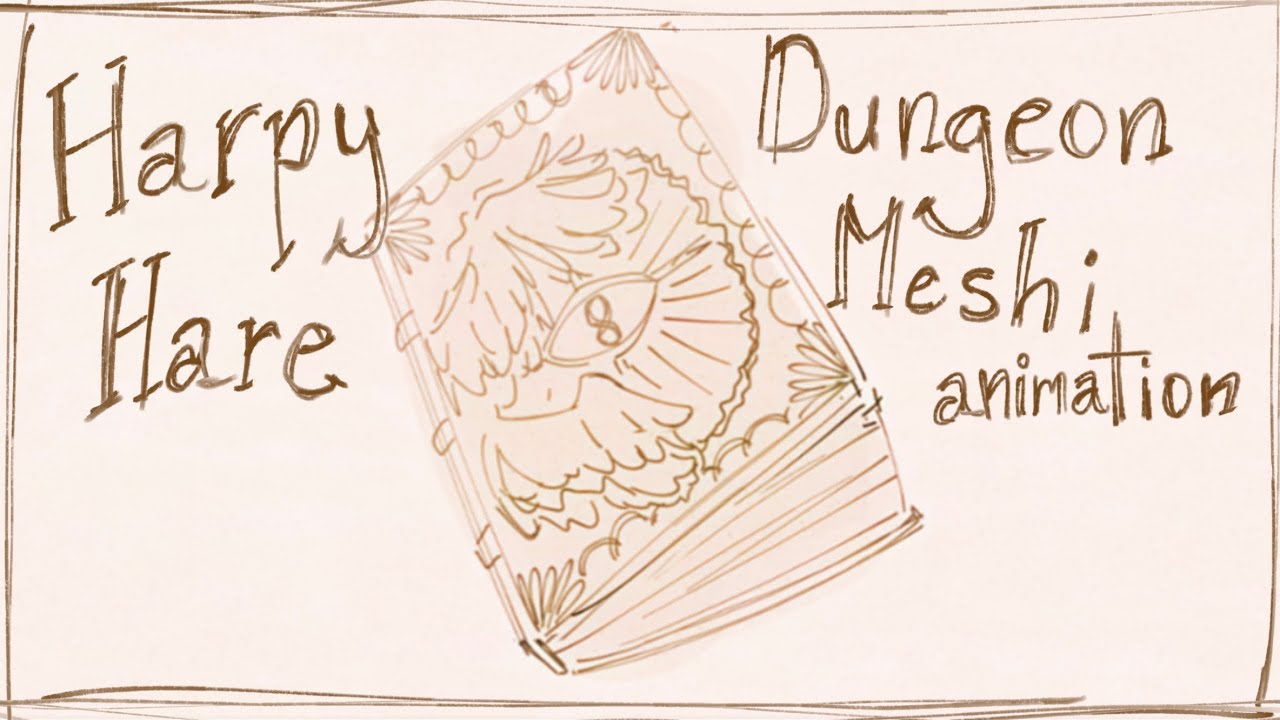 Harpy
Hare
Dungeon
Meshi
animation